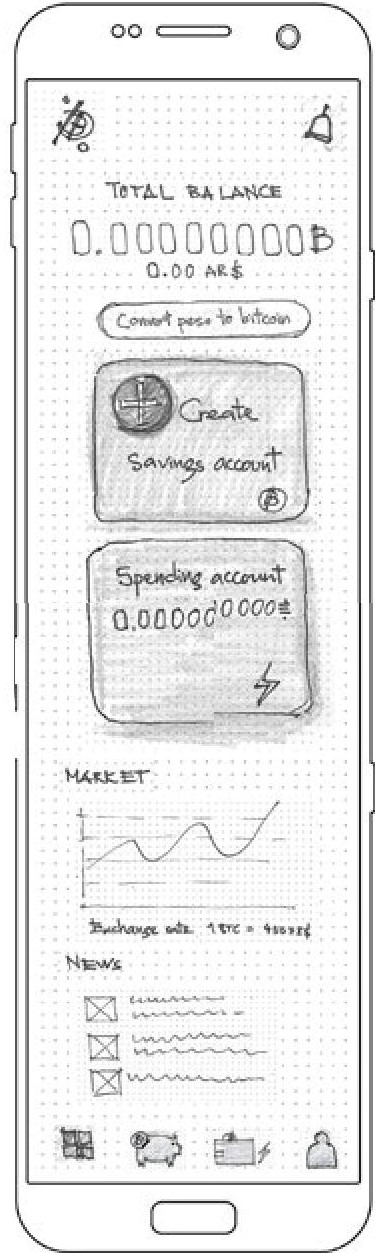 TOTAL BALANCE
0.00000000B
0.00 AR$
Convert peso to bitcoin
Create
savings account
B
Spending account
MARKET
Exchange rate 1BTC =
NEWS